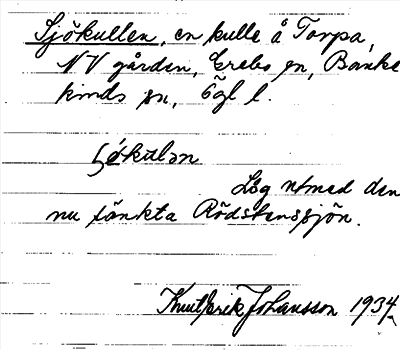 Sjökullen, en kulle å Torpa,
NV gården, Grebo sn, Banke
kinds hd, Ögl l.
ʃøkulən
Låg utmed den
nu sänkta Rödstenssjön.
Knut Erik Johansson 1934